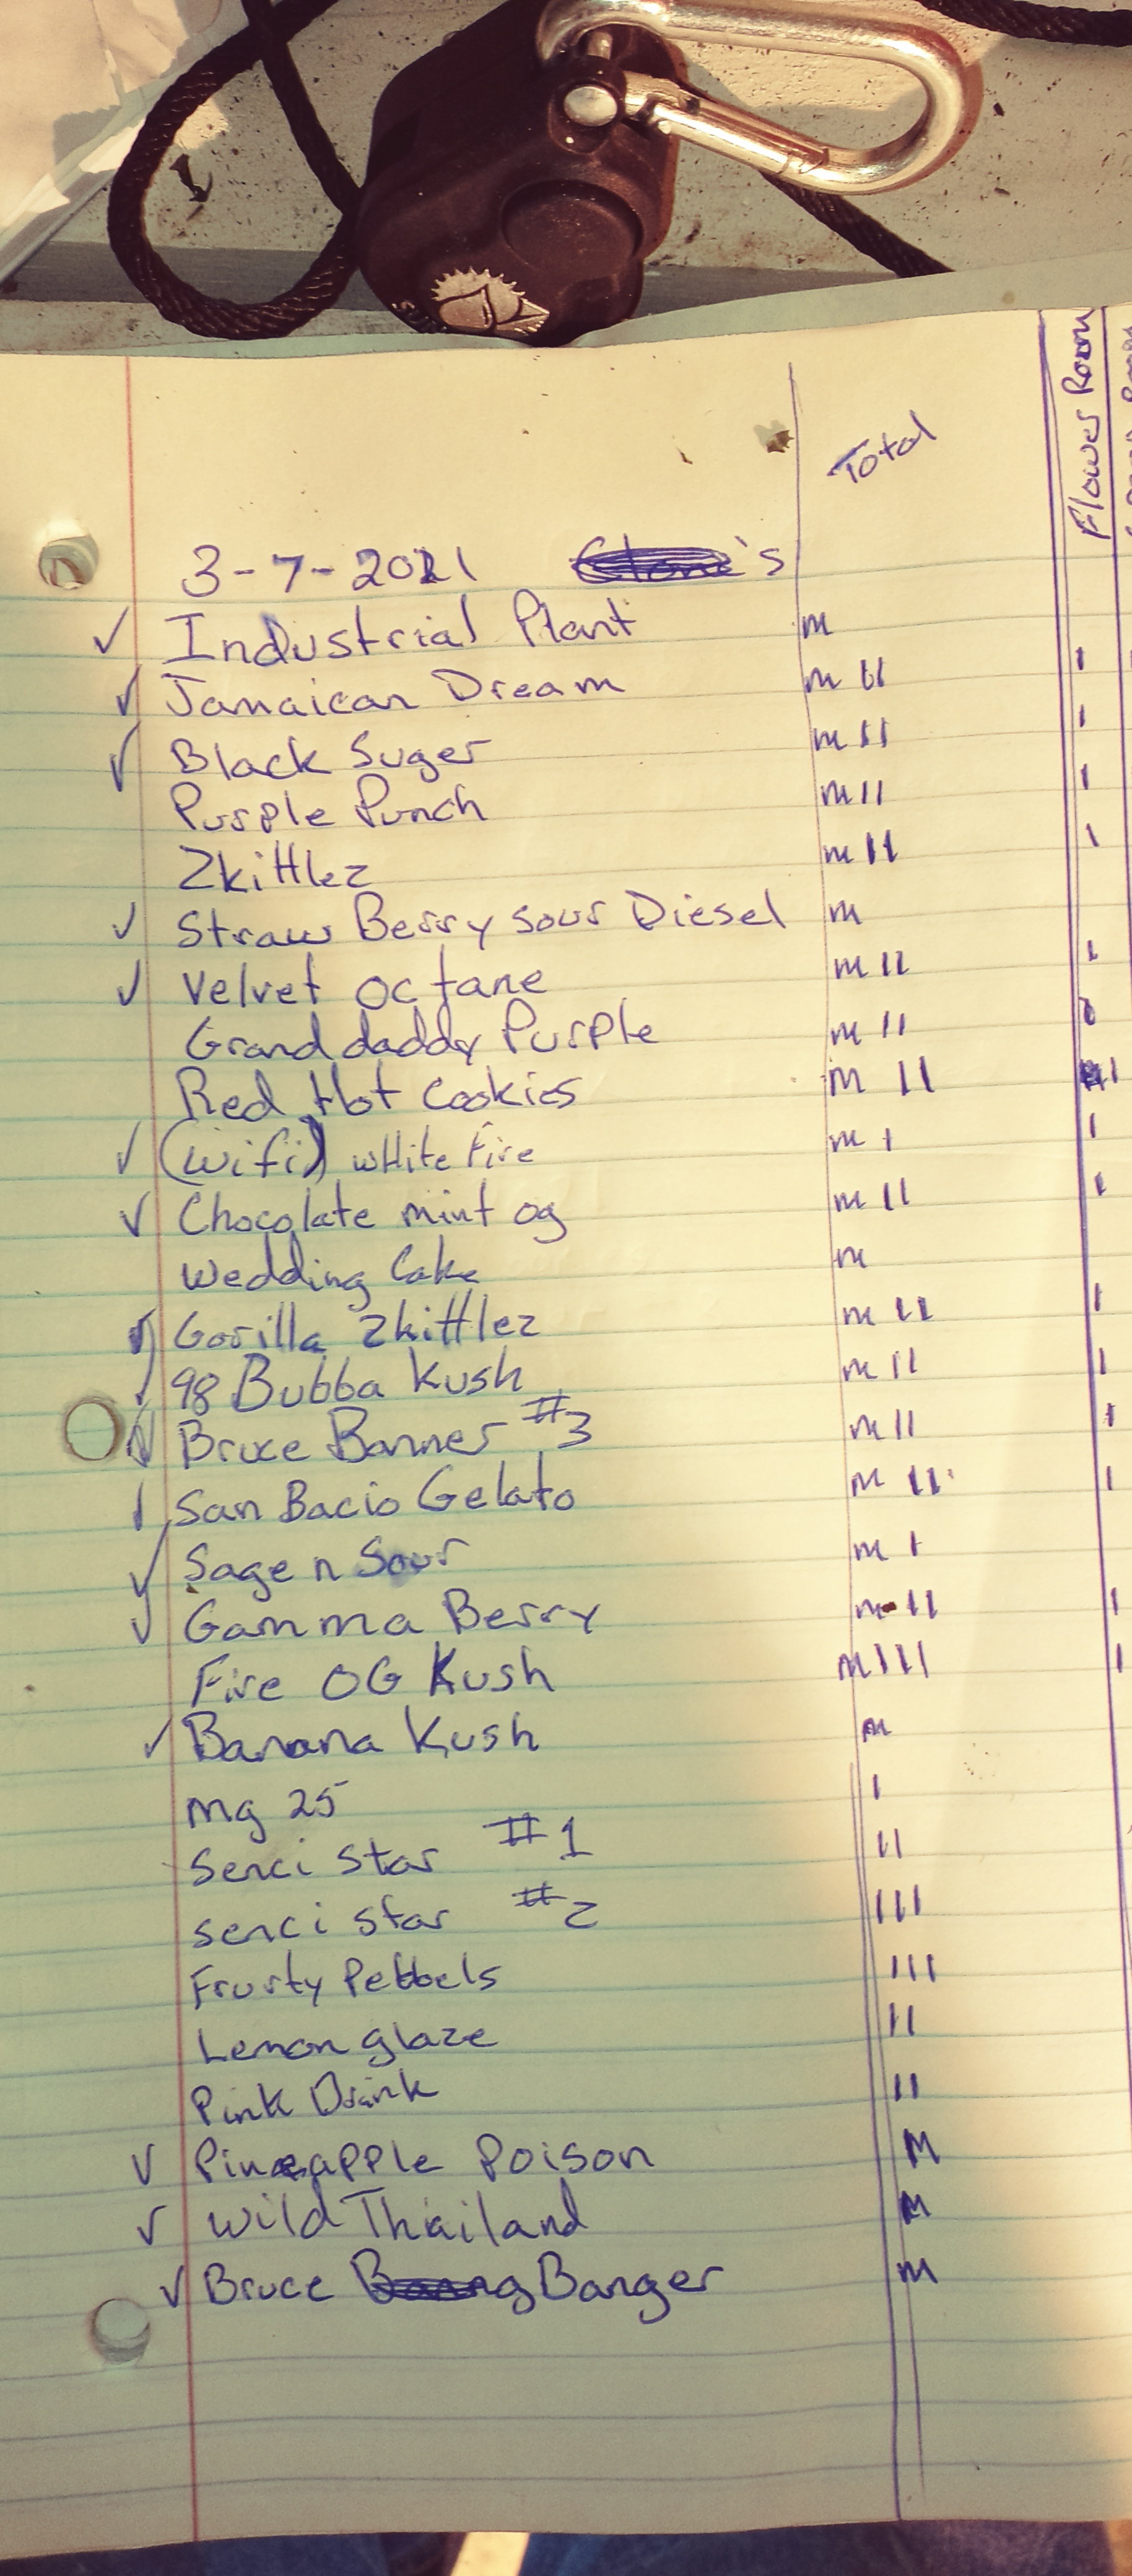 Total
Flower Room
3-7-2021 's
✓ Industrial Plant m
✓ Jamaican Dream m II I
✓ Black Suger m II I
Purple Punch m II I
Zkittlez m II I
✓ Straw Berry sour Diesel m
✓ Velvet octane m II I
Grand daddy Purple m II
Red Hot Cookies m II I
✓ (wifi) wHite Fire m I I
✓ Chocolate mint og m II I
Wedding Cake m
✓ Gorilla Zkittlez m II I
✓ 98 Bubba Kush m II I
✓ Bruce Banner #3 m II I
✓ San Bacio Gelato m II I
✓ Sage n Sour m I
✓ Gamma Berry m II I
Fire OG Kush m III I
✓ Banana Kush m
mg 25 I
Senci Star #1 II
senci star #2 III
Fruity Pebbels III
Lemon glaze II
Pink Drink II
✓ Pineapple Poison M
✓ Wild Thailand M
✓ Bruce Banger m